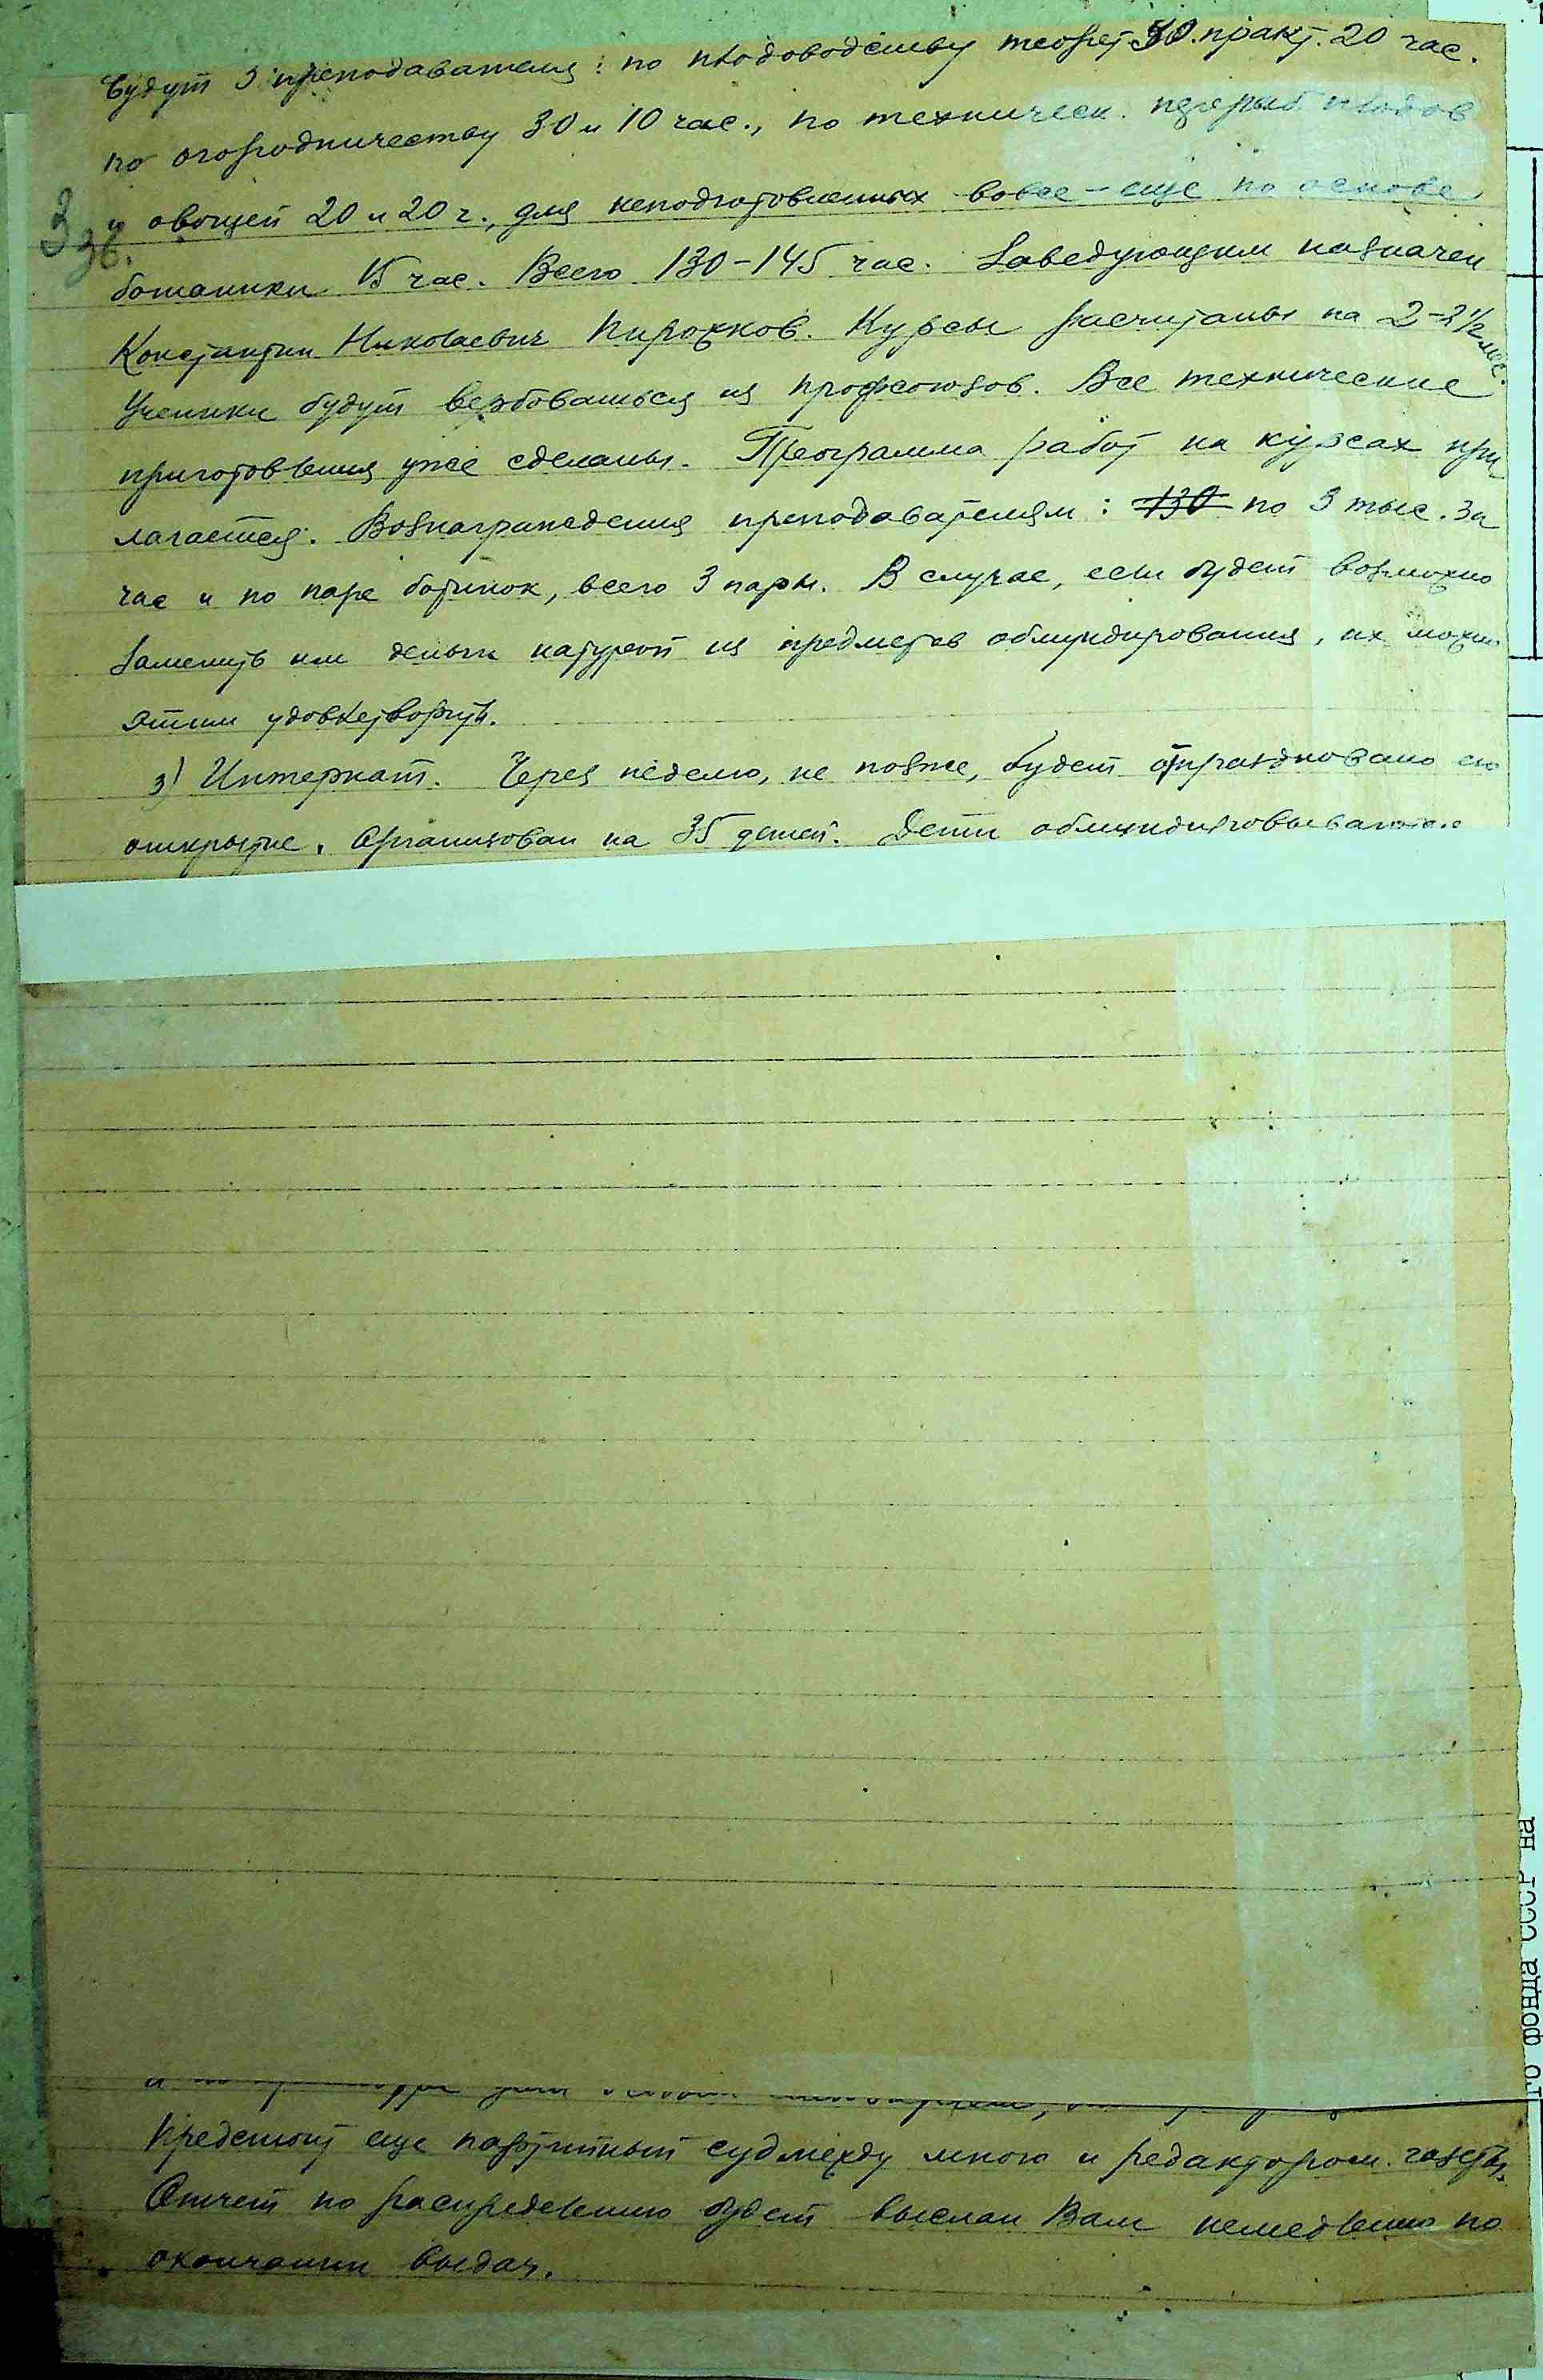 будут 3 преподавателя: по плодоводству теорет. 30. практ. 20 час.
по огородничеству 30 и 10 час., по техническ. перераб. плодов
и овощей 20 и 20 г., для неподготовленных вовсе – еще по основе
ботаники 15 час. Всего 130–145 час. Заведующим назначен
Константин Николаевич Пирожков. Курсы расчитаны на 2–2 1/2 мес.
Ученики будут вербоваться из профсоюзов. Все технические
приготовления уже сделаны. Программа работ на курсах при
лагается. Вознаграждения преподавателям: 130 по 3 тыс. за
час и по паре ботинок, всего 3 пары. В случае, если будет возможно
заменить им деньги натурой из предметов обмундирования, их можно
этим удовлетворить.
3) Интернат. Через неделю, не позже, будет отпраздновано его
открытие. Организован на 35 детей. Дети обмундировываются
Предстоит еще партийный суд между мною и редактором газеты.
Отчет по распределению будет выслан Вам немедленно по
окончании выдач.
го фонда СССР на